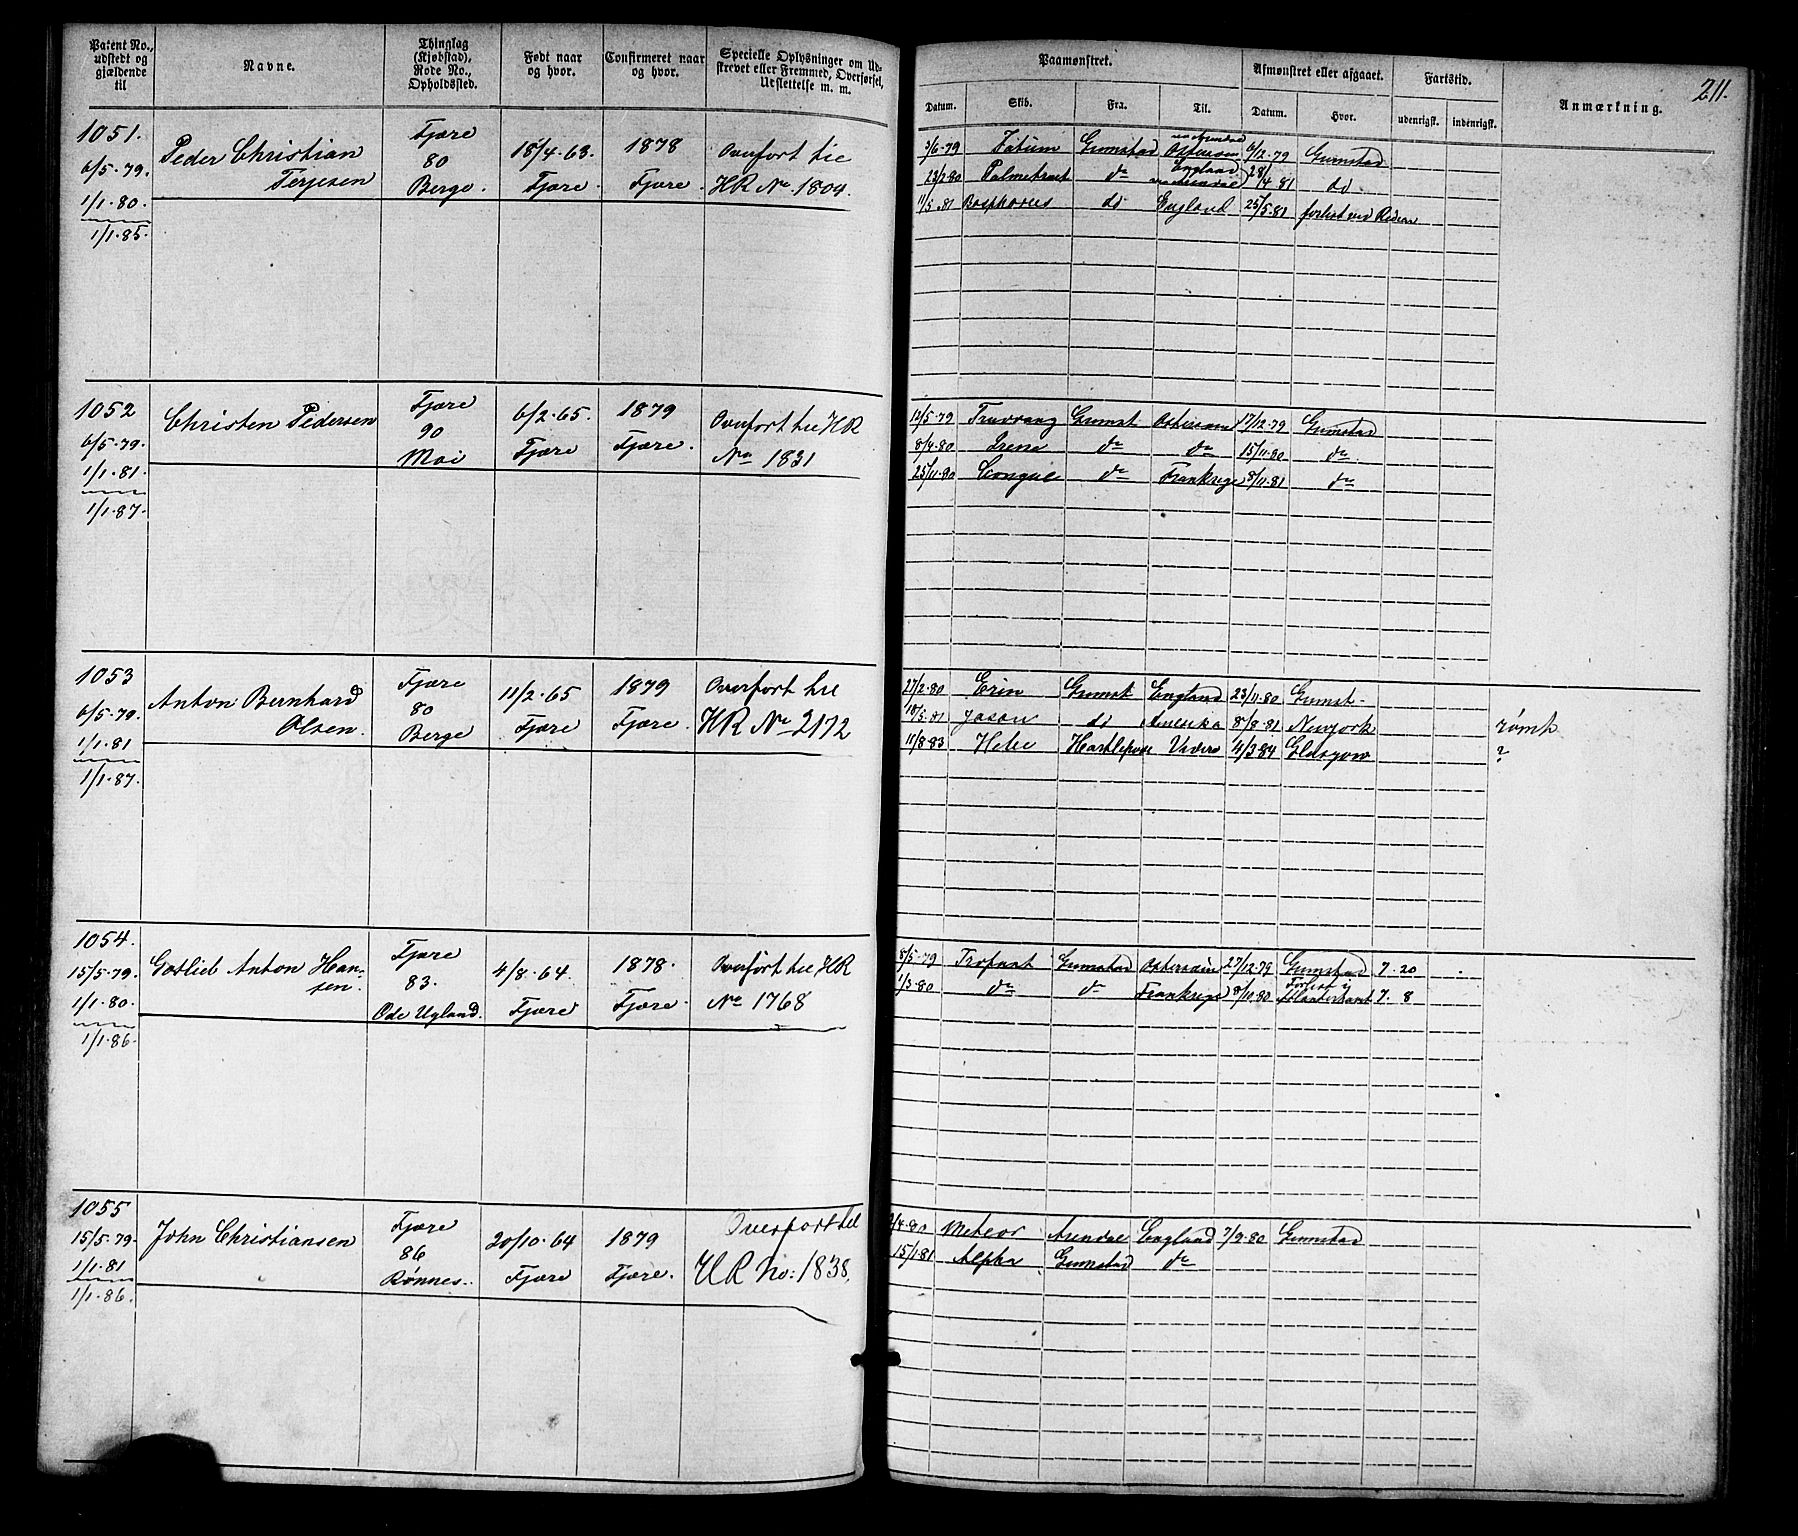 211.
Patent No., udstedt og gjældende til
Navne.
Thinglag (Kjøbstad), Rode No., Opholdssted.
Født naar og hvor.
Confirmeret naar og hvor.
Specielle Oplysninger om Udskrevet eller Fremmed, Overførsel, Udslettelse m. m.
Paamønstret.
Datum. Skib. Fra. Til.
Afmønstret eller afgaaet.
Datum. Hvor.
Fartstid.
udenrigst. indenrigst.
Anmærkning.
1051.
6/5.79.
1/1.80.
1/1.85.
Peder Christian
Terjesen
Fjære
80
Berge.
18/4.63.
Fjære.
1878
Fjære.
Overfört til
HR No 1804.
3/6.79 Grimstad Östersöen 6/12.79 Grimstad
England
13/2.80 Palmetræet do 28/4.81 do
11/5.81 Bosphorus do England 25/5.81 forlist ved Rederi
1052
6/5.79.
1/1.81.
1/1.87.
Christen Pedersen
Fjære
90
Moi
6/2.65.
Fjære
1879
Fjære.
Overfört til HR
No 1831
12/5.79 Grimst Östersöen 17/12.79 Grimstad
8/4.80 Irene do do 15/11.80 do.
25/11.80 do Frankrige 8/11.81 do
1053
6/5.79.
1/1.81
1/1.87.
Anton Bernhard
Olsen.
Fjære
80
Berge
11/2.65
Fjære
1879
Fjære.
Overfört til
HR No 2172
27/2.80 Erin Grimst England 23/11.80 Grimst.
18/5.81 Jason do Amerika 8/8.81 Newjork rømt
11/8.83 Hebe Hartlepool 4/3.84 Glasgow ?
1054.
15/5.79.
1/1.80
1/1.86.
Gotlieb Anton Han-
sen.
Fjære
83.
Ode Ugland.
4/8.64.
Fjære
1878.
Fjære.
Overfört til HR
No 1768
8/5.79 Trofast Grimstad Östersöen 27/12.79 Grimstad 7.20
1/3.80 do do Frankrige 8/10.80 Forlist i Atlanterhavet 7.8
1055
15/5.79.
1/1.81
1/1.86.
John Christiansen
Fjære
86
Rønnes.
20/10.64
Fjære
1879
Fjære.
Overfört til
HR No: 1838.
/4.80 Meteor Arendal England 7/9.80 Grimstad
15/1.81 Alpha Grimstad do